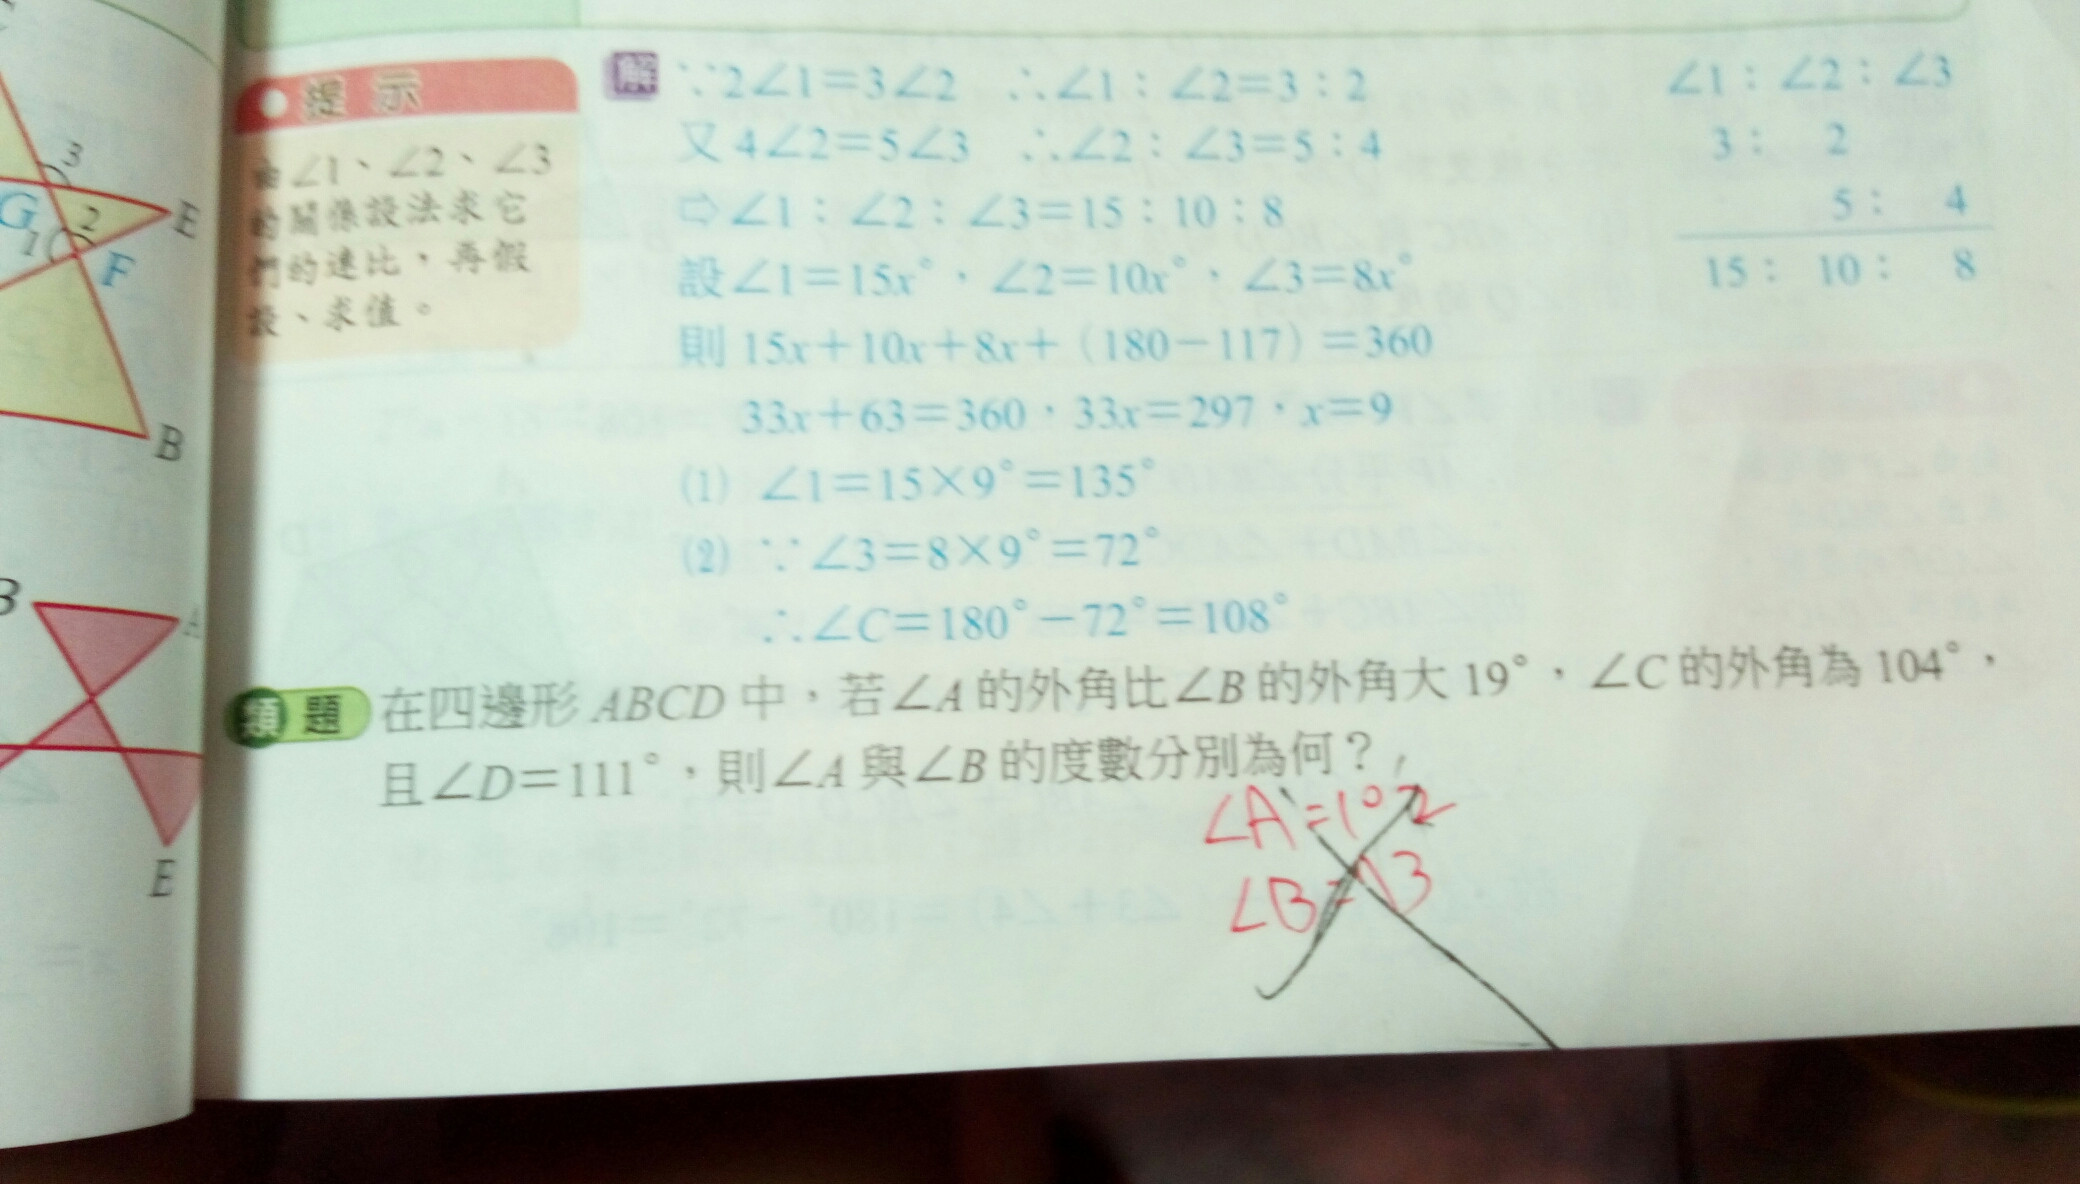 3
G
2
E
1
F
B
B
A
E
提示
由∠1、∠2、∠3
的關係設法求它
們的連比,再假
設、求值。
解 ∵2∠1=3∠2 ∴∠1:∠2=3:2
又4∠2=5∠3 ∴∠2:∠3=5:4
⇨∠1:∠2:∠3=15:10:8
設∠1=15x°,∠2=10x°,∠3=8x°
則15x+10x+8x+(180-117)=360
33x+63=360,33x=297,x=9
(1) ∠1=15×9°=135°
(2) ∵∠3=8×9°=72°
∴∠C=180°-72°=108°
∠1:∠2:∠3
3: 2
5: 4
15: 10: 8
類題 在四邊形ABCD中,若∠A的外角比∠B的外角大19°,∠C的外角為104°,
且∠D=111°,則∠A與∠B的度數分別為何?
∠A=102
∠B=